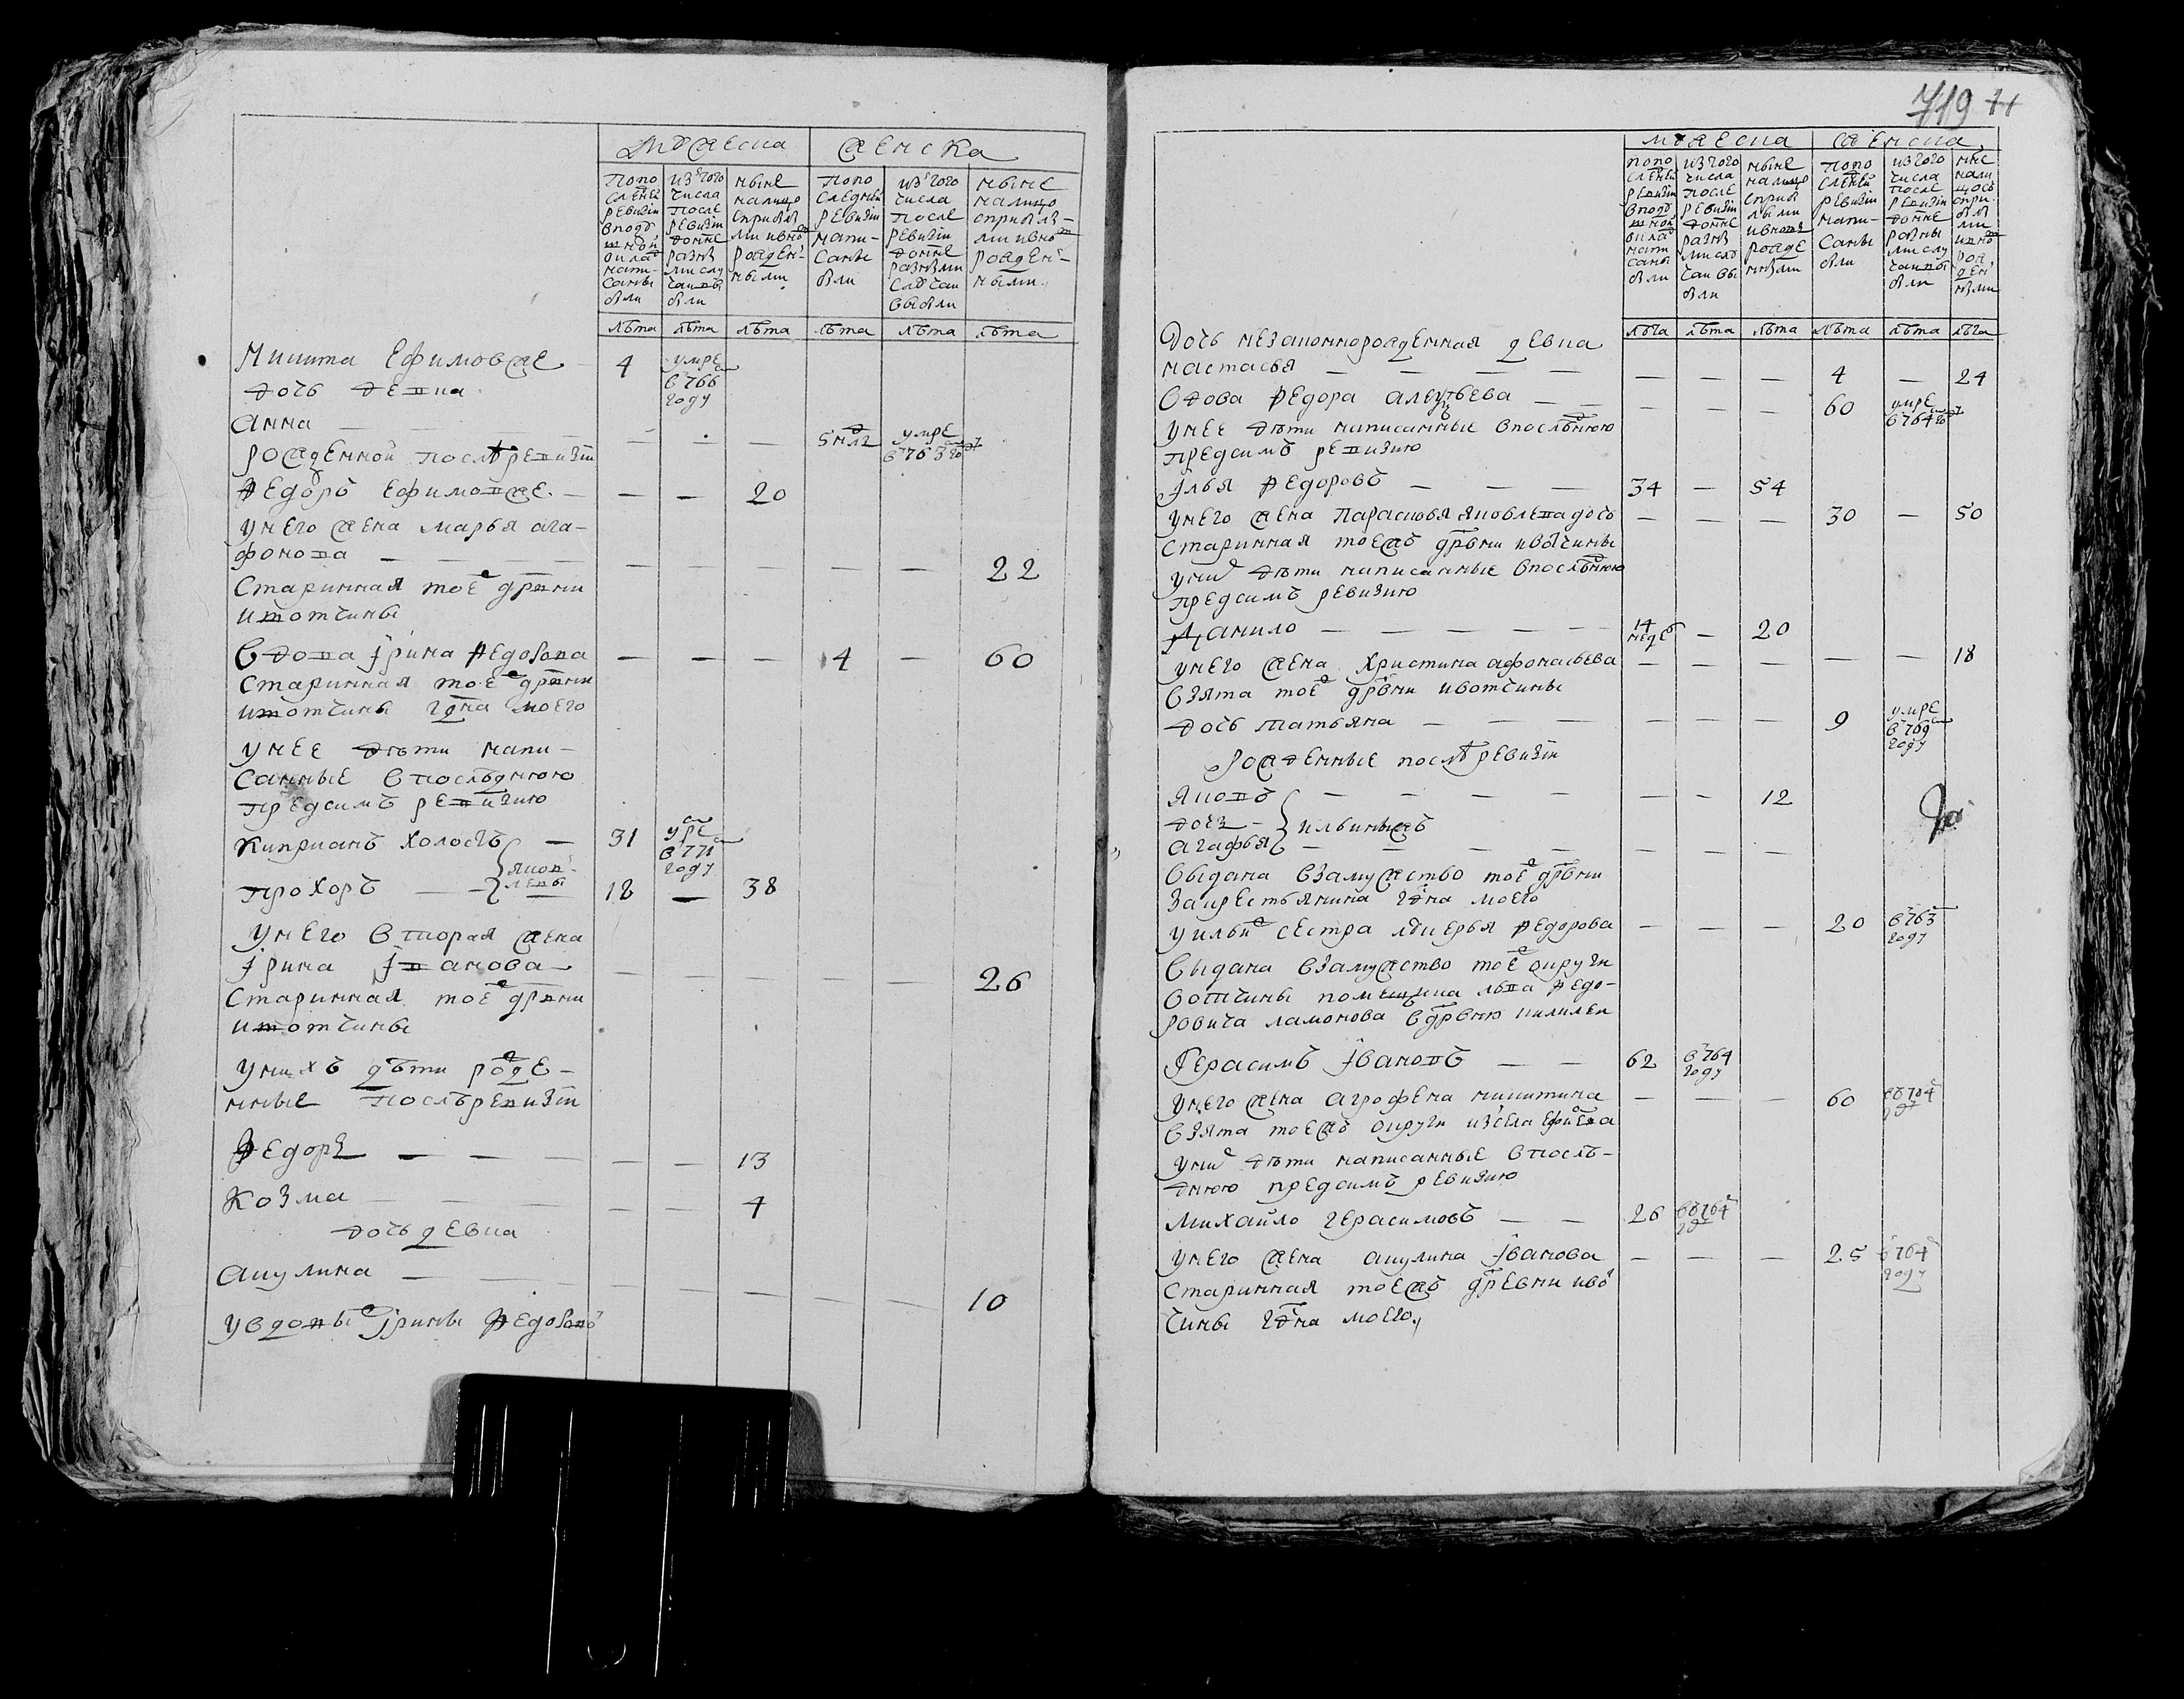 мужеска
женска
по по
следнеи
ревизiи
в поду
шнои
оклад
напи-
саны
были
из того
числа
после
ревизiи
до ныне
разны
ми слу
чаи вы
были
ныне
на лицо
с прибы
лыми и вно
рожден-
ными
по по
следнеи
ревизiи
напи-
саны
были
из того
числа
после
ревизiи
до ныне
разными
случаи
выбыли
ныне
на лицо
с прибылы-
ми и вно
рожден-
ными
лѣта лѣта лѣта лѣта лѣта лѣта
Никита Ефимов же 4 умре
в 766
году
дочь девка
Анна — — — — 5 нѣд умре
в 763 го
рожденной послѣ ревизiи
Федоръ Ефимов же — — — 20
у него жена Марья Ага-
фонова — — — — — — 22
старинная тое ж дрвни
и вотчины
вдова Iрина Федорова — — — 4 — 60
старинная тое ж дрвни
и вотчины гдна моего
у нее дѣти напи-
санные в последнюю
пред симъ ревизию
Киприанъ холостъ — 31 умре
в 771
году
Яков-
левы
Прохоръ — 18 — 38
у него вторая жена
Iрина Iванова — — — — — — 26
старинная тое ж дрвни
и вотчины
у нихъ дѣти рожде-
нные послѣ ревизiи
Федоръ — — — — — 13
Козма — — — — 4
дочь девка
Акулина — — — — — — 10
у вдовы ж Iрины Федоровой
719 11
мужеска
женска
по по
следнеи
ревизiи
в поду
шнои
оклад
напи
саны
были
из того
числа
после
ревизiи
до ныне
разны
ми слу
чаи вы
были
ныне
на лицо
с прибы
лыми
и вновь
рожде
ными
по по
следнеи
ревизiи
напи-
саны
были
из того
числа
после
ревизiи
до ныне
разны
ми слу
чаи вы
были
ныне
на ли
цось
с при
бы
ми
и вно
рож
ден
ными
лѣта лѣта лѣта лѣта лѣта лѣта
Дочь незаконнорожденная девка
Настасья — — — — — — — 4 — 24
Вдова Федора Алексѣева — — — — — 60 умре
в 764 го
у нее дѣти написанные в последнюю
пред симъ ревизию
Iлья Федоровъ — — — 34 — 54
у него жена Парасковья Яковлева дочь — — — 30 — 50
старинная тоежъ дрвни и вотчины
у них дѣти написанные в последнюю
пред симъ ревизию
Данило — — — — — 14
недел — 20
у него жена Христина Афонасьева — — — — — 18
взята тое ж дрвни и вотчины
дочь Татьяна — — — — — — 9 умре
в 769
году
рожденные послѣ ревизiи
Яковъ — — — — — — 12
дочь
Ильины ж
Агафья — — — — — — —
выдана в замужство тое ж дрвни
за крестьянина гдна моего
у Ильи ж сестра Лукерья Федорова — — — 20 в 763
году
выдана в замужство тое ж округи
вотчины помещика Льва Федо-
ровича
Герасимъ Iвановъ — — 62 в 764
году
у него жена Агрофена Никитина — — — 60 в 764
году
взята тоежъ округи из села
у них дѣти написанные в послѣ-
днюю пред симъ ревизию
Михайло Герасимовъ — — 26 в 764
году
у него жена Акулина Iванова — — — 25 в 764
году
старинная тоежъ древни и вот
чины гдна моего